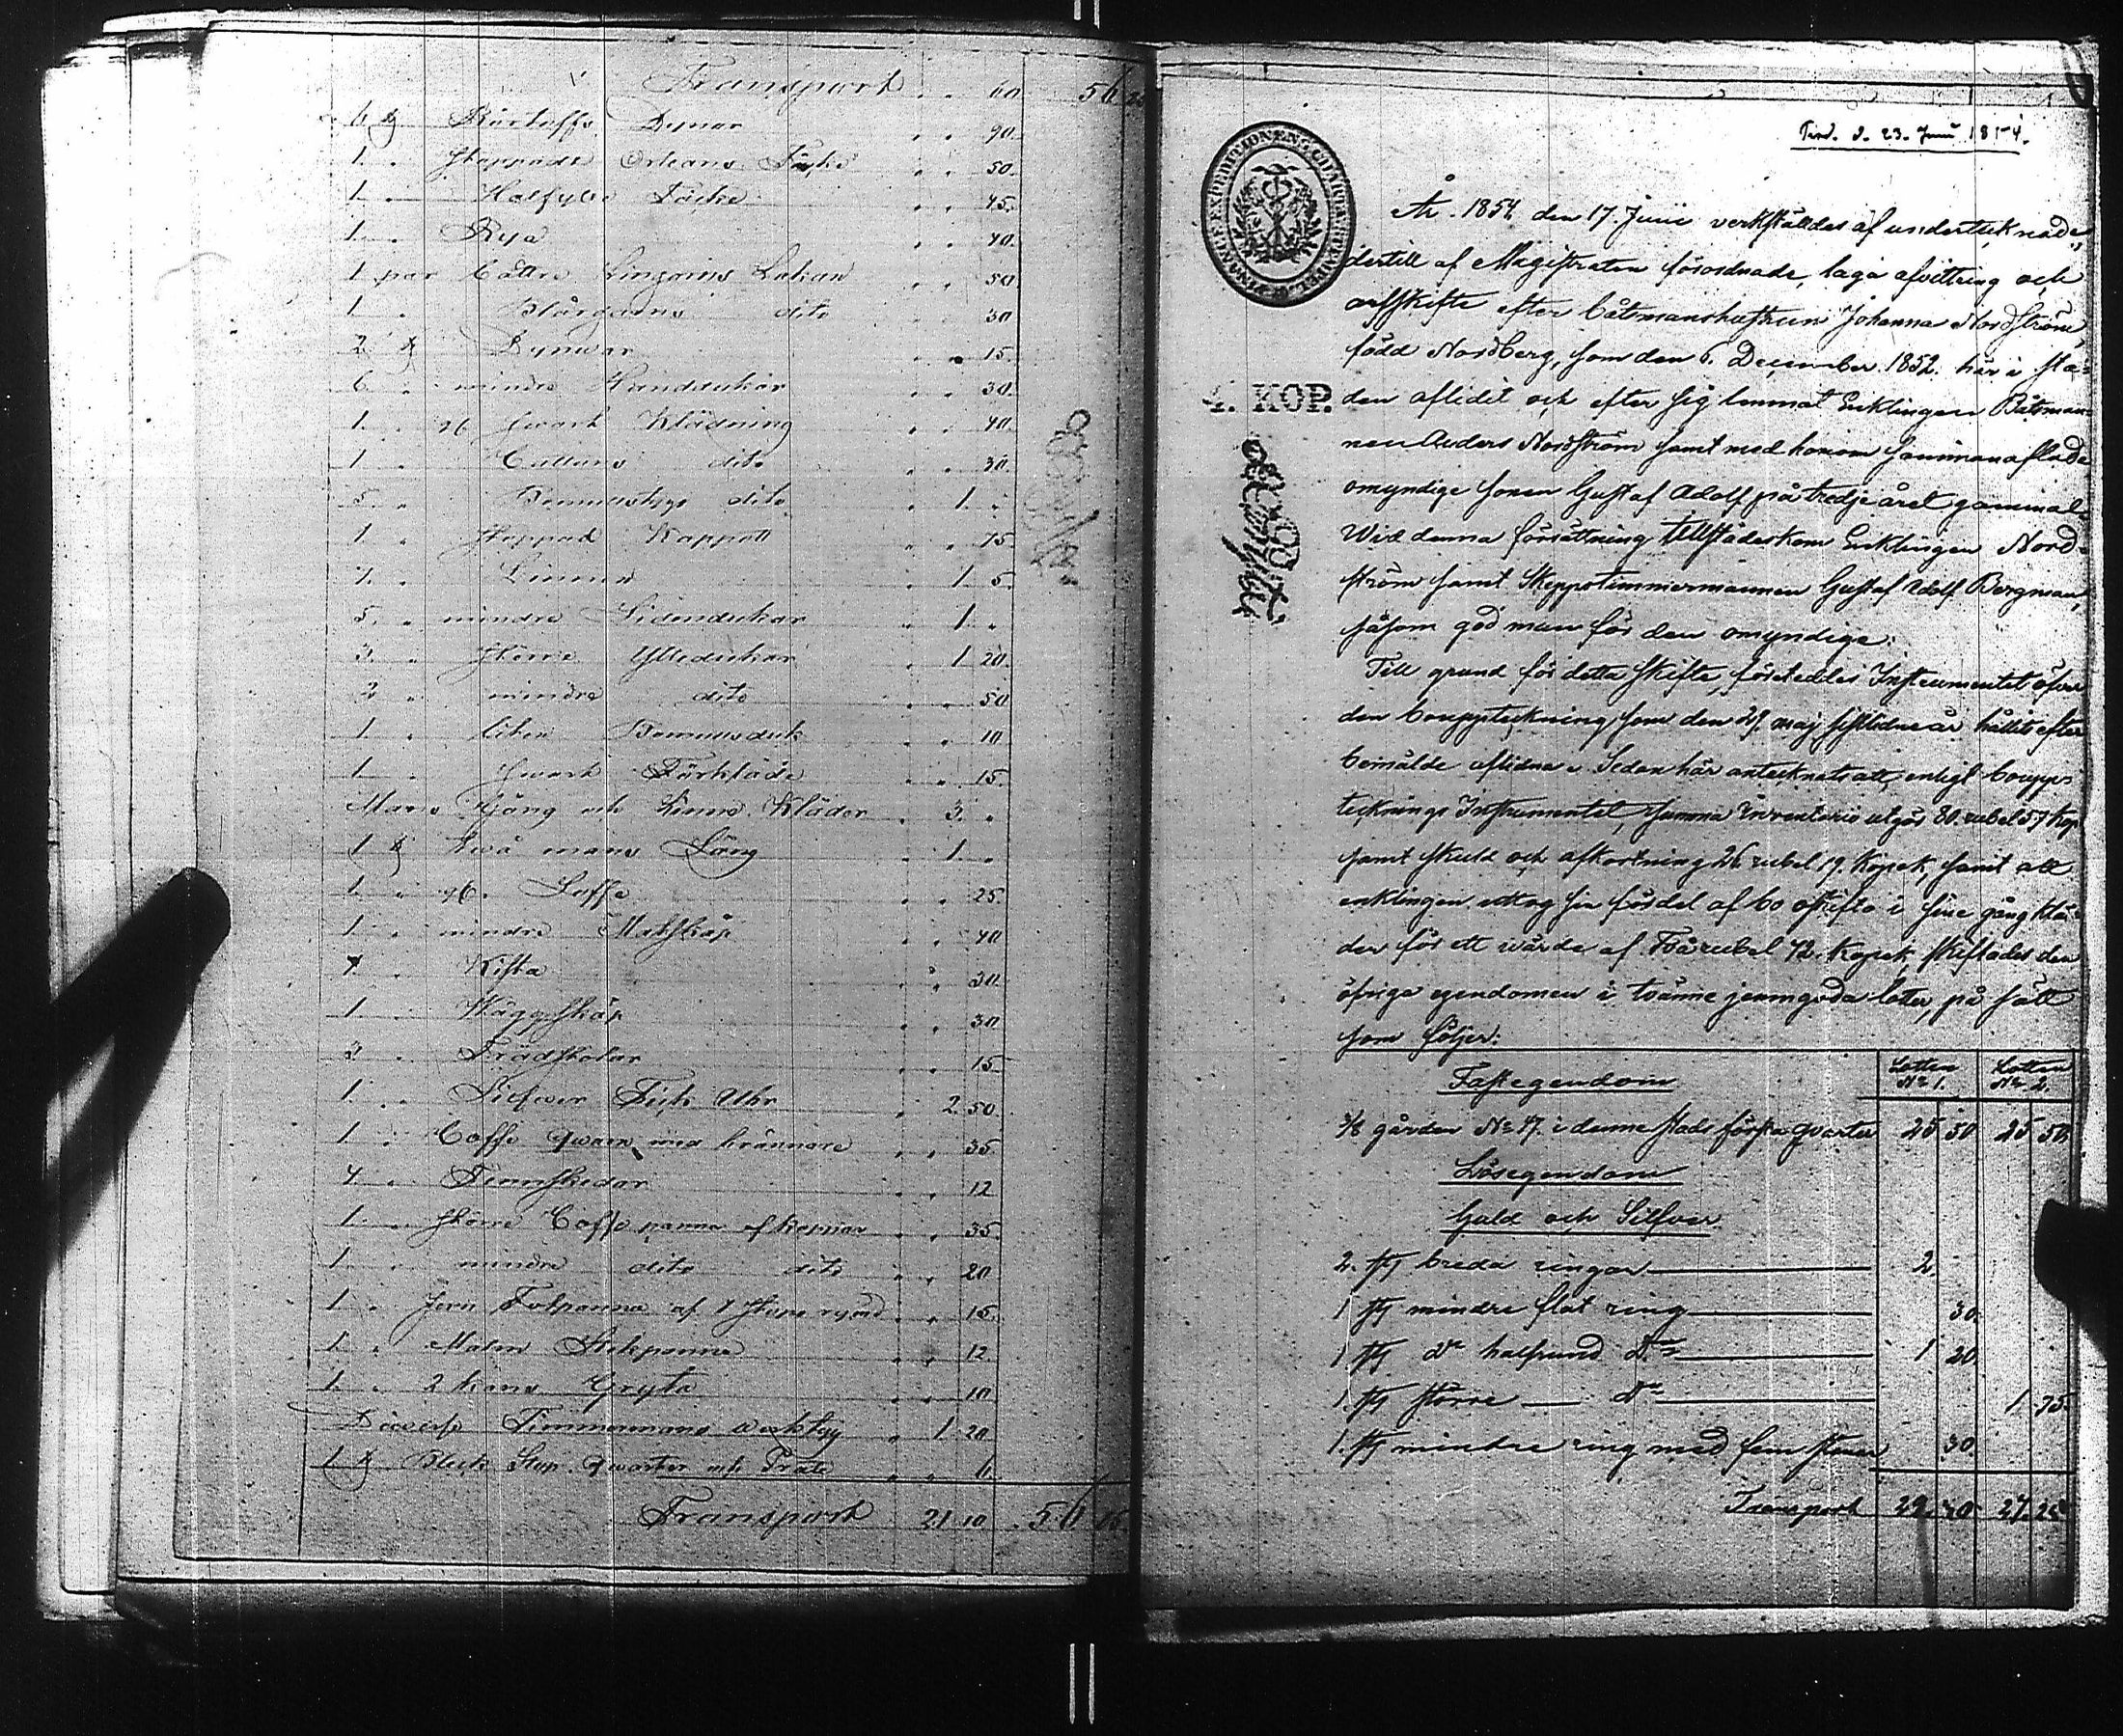 Transport " " 60 56
4 st Bårtoffs Dynor " " 90.
1 " stoppade Orleans Täcke " " 50.
1 " Halfylle Täcke " " 45.
1 " Rya " " 40.
1 par bättre Lingarns Lakan " " 50
1 " Blårgarns dito " " 30
2 st Dynwar " " 15.
6 " mindre Handdukar " " 30.
1 " swart Klädning " " 40.
1 " Cattuns dito " " 30.
5 " Bomullstygs dito " 1. "
1 " stoppad Kappott " " 75.
7 " Linnen " 1 5.
5 " mindre Sidendukar " 1 "
3 " större Ylledukar " 1 20.
2 " mindre dito " " 50
1 " liten Bomullsduk " " 10
1 " swart Förkläde " " 15.
Mans Gång och Linne Kläder " 3. "
1 st twå mans Säng " 1 "
1 " Soffa " " 25.
1 " mindre Matskåp " " 40
1 " Kista " " 30.
1 " Wäggskåp " " 30
3 " Trädstolar " " 15
1 " Silfwer Fick Uhr " 2 50.
1 " Caffe qwarn med brännare " " 35.
4 " Tennskedar " " 12
1 " större Caffe panna af koppar " " 35.
1 " mindre dito dito " " 20
1 " Jern Fotpanna af 1 stops rymd " " 15.
1 " Malm Stekpanna " " 12.
1 " 2 kans Gryta " " 10
Diverse Timmermans wärktyg " 1 20
1 st Bleck Stop. Qwarter och Tratt " " 6.
Transport 21 10 56

d. 23. Juni 1854.
FINANCE EXPEDITIONENS CHARTÆ
4. KOP.
År 1854 den 17. Junii verkställdes af undertecknade,
dertill af Magistraten förordnade, laga afvittring och
arfskifte efter båtsmanshustrun Johanna Nordström,
född Nordberg, som den 6. December 1852. här i sta-
den aflidit och efter sig lemnat Enklingen Båtsman-
nen Anders Nordström samt med honom sammanaflade
omyndige sonen Gustaf Adolf på tredje året gammal.
Wid denna förrättning tillstädeskom Enklingen Nord-
ström samt Skeppstimmermannen Gustaf Adolf Bergman,
såsom god man för den omyndige.
Till grund för detta skifte, företeddes Instrumentet öfver
den bouppteckning, som den 29. maj sistledne år hållits efter
bemälde aflidna. Sedan här antecknats att, enligt boupp-
tecknings Instrumentet, summa Inventarii utgör 80. rubel 57 kop
samt skuld och afkortning 26 rubel 19. Kopek, samt att
enklingen uttog sin fördel af bo oskifto i sine gångklä-
der för ett wärde af Två rubel 72. Kopek, skiftades den
öfriga egendomen i tvänne jemngoda lotter, på sätt
som följer:
Lotten No 1. Lotten No 2.
Fastegendom
gården No 17. i denne stads första qvarter 25 50 25 50.
Lösegendom
Guld och Silfver
2. st breda ringar 2.
1 st mindre slät ring 30.
1 st do halfrund do 1 20
1. st större do 1. 75.
1. st mindre ring med fem stenar 30
Transport 29. 30 27. 25